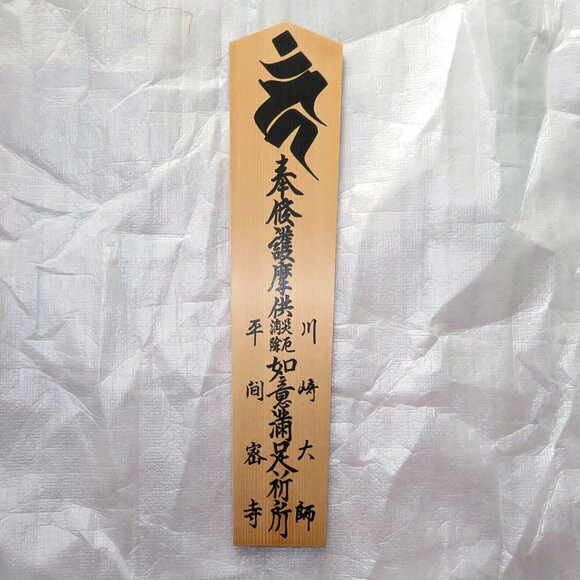 奉修護摩供
災厄
消除
如意滿足祈所
川崎大師
平間密寺